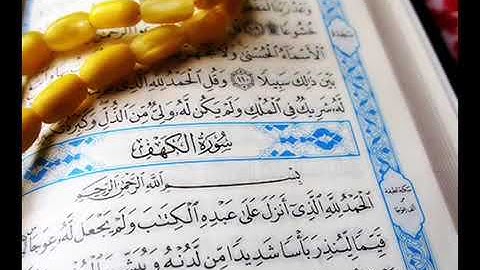 خُشُوعًا
الْأَسْمَاءُ الْحُسْنَىٰ
بَيْنَ ذَٰلِكَ سَبِيلًا ١١٠ وَقُلِ الْحَمْدُ لِلَّهِ الَّذِي
لَّهُ شَرِيكٌ فِي الْمُلْكِ وَلَمْ يَكُن لَّهُ وَلِيٌّ مِّنَ الذُّلِّ وَكَبِّرْهُ
سُورَةُ الْكَهْفِ
بِسْمِ اللَّهِ الرَّحْمَٰنِ الرَّحِيمِ
الْحَمْدُ لِلَّهِ الَّذِي أَنزَلَ عَلَىٰ عَبْدِهِ الْكِتَابَ وَلَمْ يَجْعَل لَّهُ عِوَجًا
قَيِّمًا لِّيُنذِرَ بَأْسًا شَدِيدًا مِّن لَّدُنْهُ وَيُبَشِّرَ